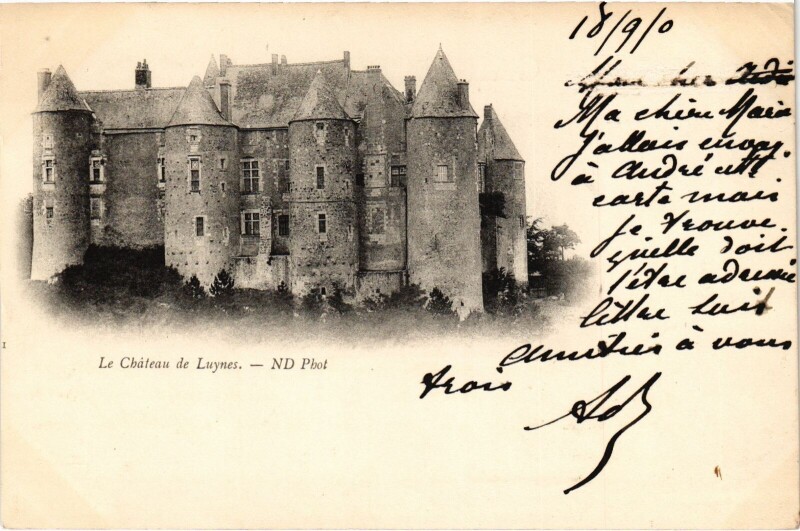 18/9/0
Mon cher André
Ma chère Maria
j'allais envoy.
à André cette
carte mais
je trouve
qu'elle doit
t'être adressée
lettre suit
Amitiés à vous
trois
Ad
Le Château de Luynes. — ND Phot